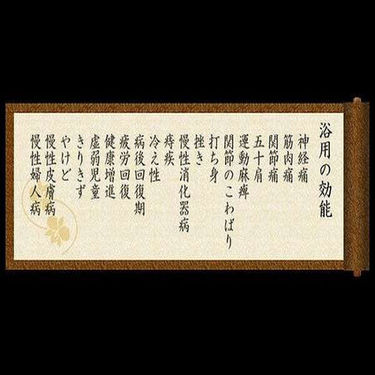 浴用の効能
神経痛
筋肉痛
関節痛
五十肩
運動麻痺
関節のこわばり
打ち身
挫き
慢性消化器病
痔疾
冷え性
病後回復期
疲労回復
健康増進
虚弱児童
きりきず
やけど
慢性皮膚病
慢性婦人病